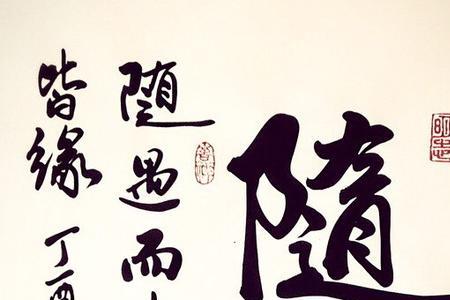 随
随遇而
皆缘 丁酉